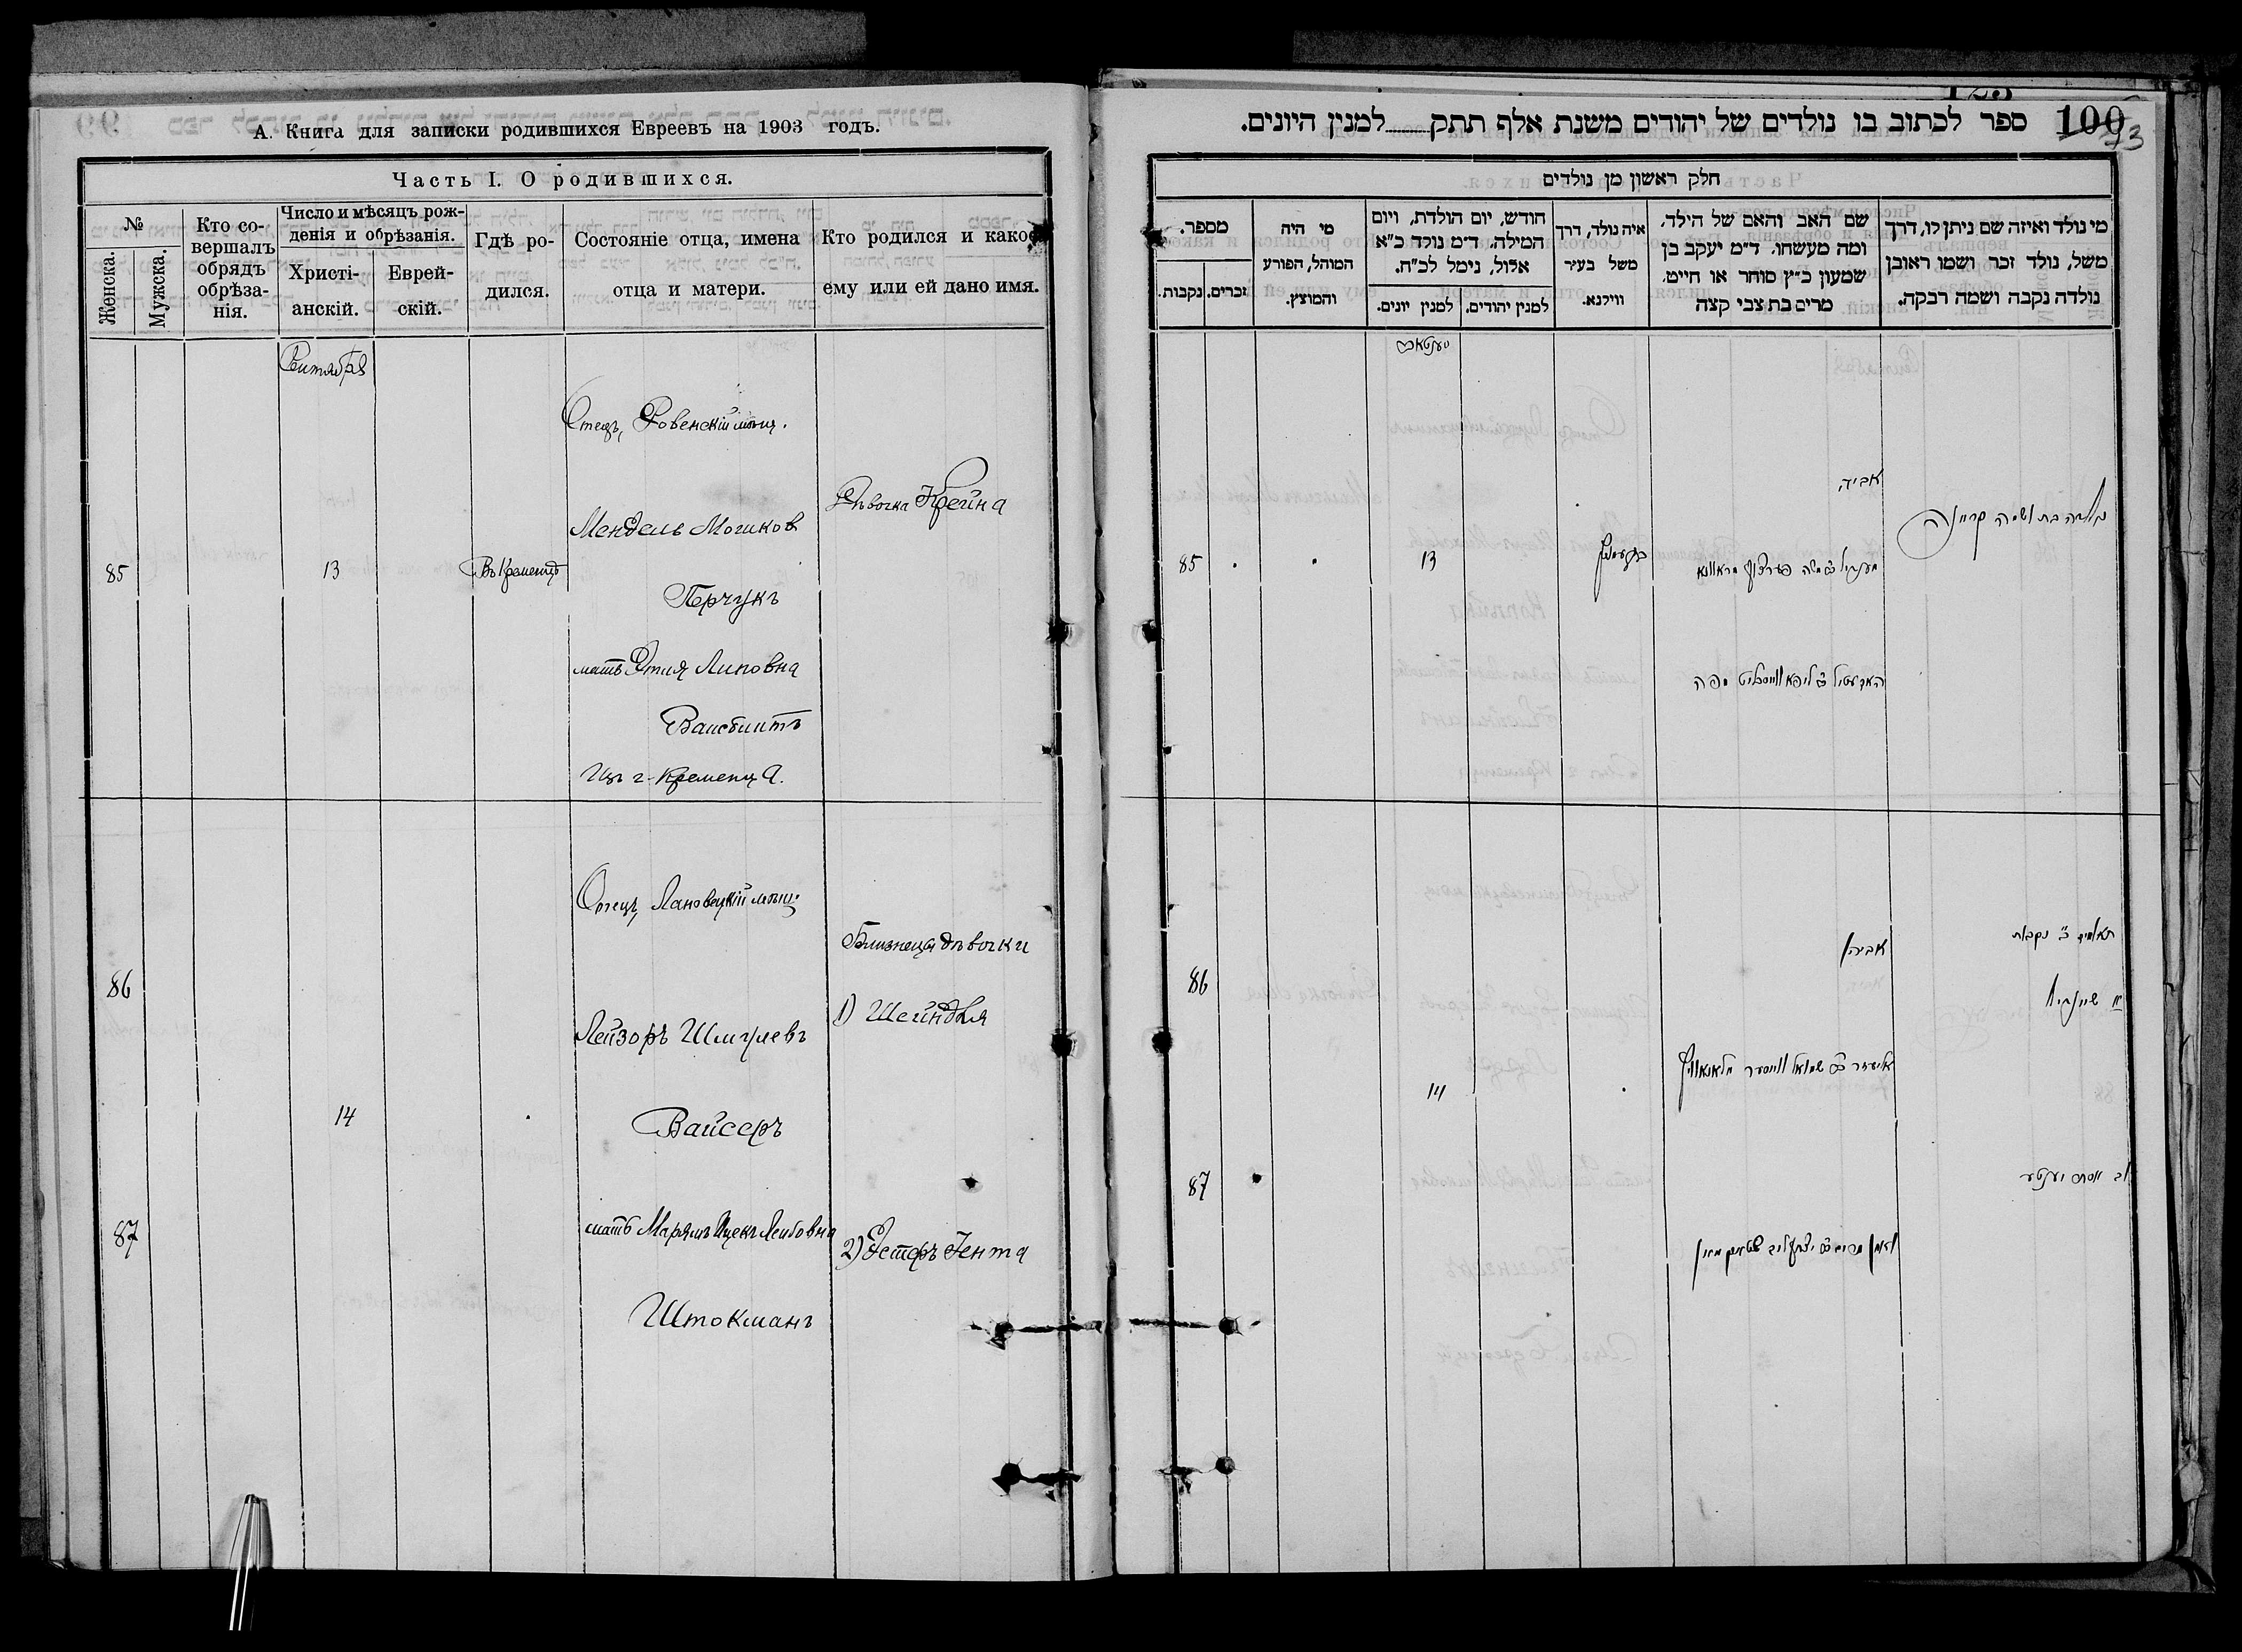 А. Книга для записки родившихся Евреевъ на 1903 годъ.
Часть I. О родившихся.
№
Женска.
Мужска.
Кто со-
вершалъ
обрядъ
обрѣза-
нія.
Число и мѣсяцъ рож-
денія и обрѣзанія.
Христі-
анскій.
Еврей-
скій.
Гдѣ ро-
дился.
Состояніе отца, имена
отца и матери.
Кто родился и какое
ему или ей дано имя.
Сентября
85
13
Въ Кременцѣ
Отецъ, Ровенскій мѣщ.
Мендель Мошков
Перчукъ
мать Этля Липовна
Вайсблитъ
Изъ г. Кременца.
Дѣвочка Крейна
86
87
14
Отецъ, Лановецкій мѣщ.
Лейзоръ Шмулевъ
Вайсеръ
мать Марямъ Ицекъ Лейбовна
Штокманъ
Близнеца дѣвочки
1) Шейндля
2) Эстеръ Гента
100
73
ספר לכתוב בו נולדים של יהודים משנת אלף תתק למנין היונים.
חלק ראשון מן נולדים
מספר.
זכרים.
נקבות.
מי היה
המוהל, הפורע
והמוצץ.
חודש, יום הולדת, ויום
המילה. ד״מ נולד כ״א
אלול, נימל לכ״ח.
למנין יונים.
למנין יהודים.
איה נולד, דרך
משל בעיר
ווילנא.
שם האב והאם של הילד,
ומה מעשהו. ד״מ יעקב בן
שמעון כ״ץ סוחר או חייט.
מרים בת צבי קצה
מי נולד ואיזה שם ניתן לו, דרך
משל, נולד זכר ושמו ראובן
נולדה נקבה ושמה רבקה.
85
13
אביה
86
87
14